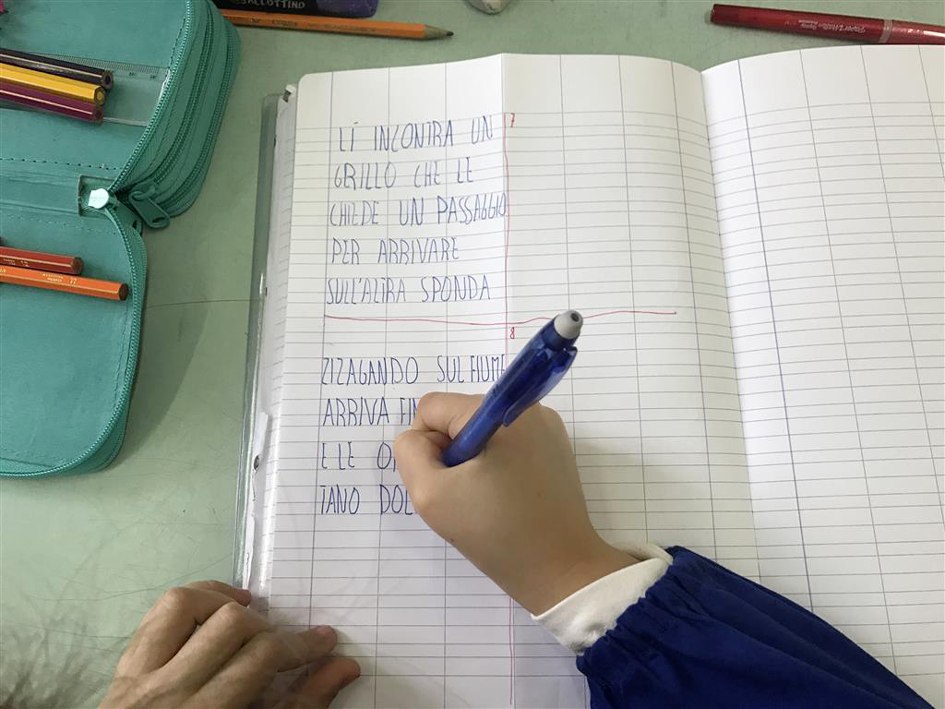 ALLOTTINO
7
LÍ INCONTRA UN
GRILLO CHE LE
CHIEDE UN PASSAGGIO
PER ARRIVARE
SULL'ALTRA SPONDA
8
ZIZAGANDO SUL FIUME
ARRIVA
E LE
TANO